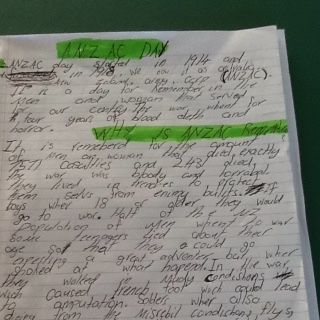 ANZAC DAY
ANZAC day started in 1914 and
in 1918. we now it as astralia
New Zeland army Corp (ANZAC).
It is a day for Remember in the
Men and woman that served
for our contry the war whent for
four years of blood deth and
horror.
WHY IS ANZAC
It is remembered for the amount
of men or woman they died exactly
7571 casualties and 2431 died,
the war was bloody and horrabal
They lived in trenches to protect
them selvs from enimy bullits. If
boys wher 18 or older they would
go to war. Half of the NZ
Population of Men whent to war
Some teenagers lied about their
age so that they could go
expecting a great advanter but wher
shoked at what hapend. In the war
they walked in Muddy condishons
wich caused trench foot wich could lead
to amputation. Solders wher allso
dieing from the Missrbil condishons, flys,